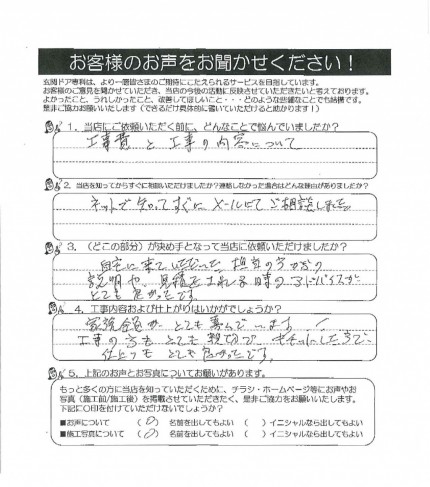 お客様のお声をお聞かせください！
玄関ドア専科は、より一層皆さまのご期待にこたえられるサービスを目指しています。
お客様のご意見を聞かせていただき、当店の今後の活動に反映させていただきたいと考えております。
よかったこと、うれしかったこと、改善してほしいこと・・・どのような些細なことでも結構です。
是非ご協力お願いいたします（できるだけ具体的に書いていただけると助かります！）
1．当店にご依頼いただく前に、どんなことで悩んでいましたか？
工事費と工事の内容について
2．当店を知ってからすぐに相談いただけましたか？連絡しなかった場合はどんな理由がありましたか？
ネットで知ってすぐにメールにてご相談しました。
3．（どこの部分）が決め手となって当店に依頼いただけましたか？
自宅に来ていただいた担当の方からの
説明や、見積をされる時のアドバイスが
とても良かったです。
4．工事内容および仕上がりはいかがでしょうか？
家族全員がとても喜んでいます！
工事の方もとても親切で、
仕上りもとても良かったです。
5．上記のお声とお写真についてお願いがあります。
もっと多くの方に当店を知っていただくために、チラシ・ホームページ等にお声やお
写真（施工前/施工後）を掲載させていただきたく、是非ご協力をお願いいたします。
下記に○印を付けていただけないでしょうか？
■お声について （○）名前を出してもよい （ ）イニシャルなら出してもよい
■施工写真について （○）名前を出してもよい （ ）イニシャルなら出してもよい